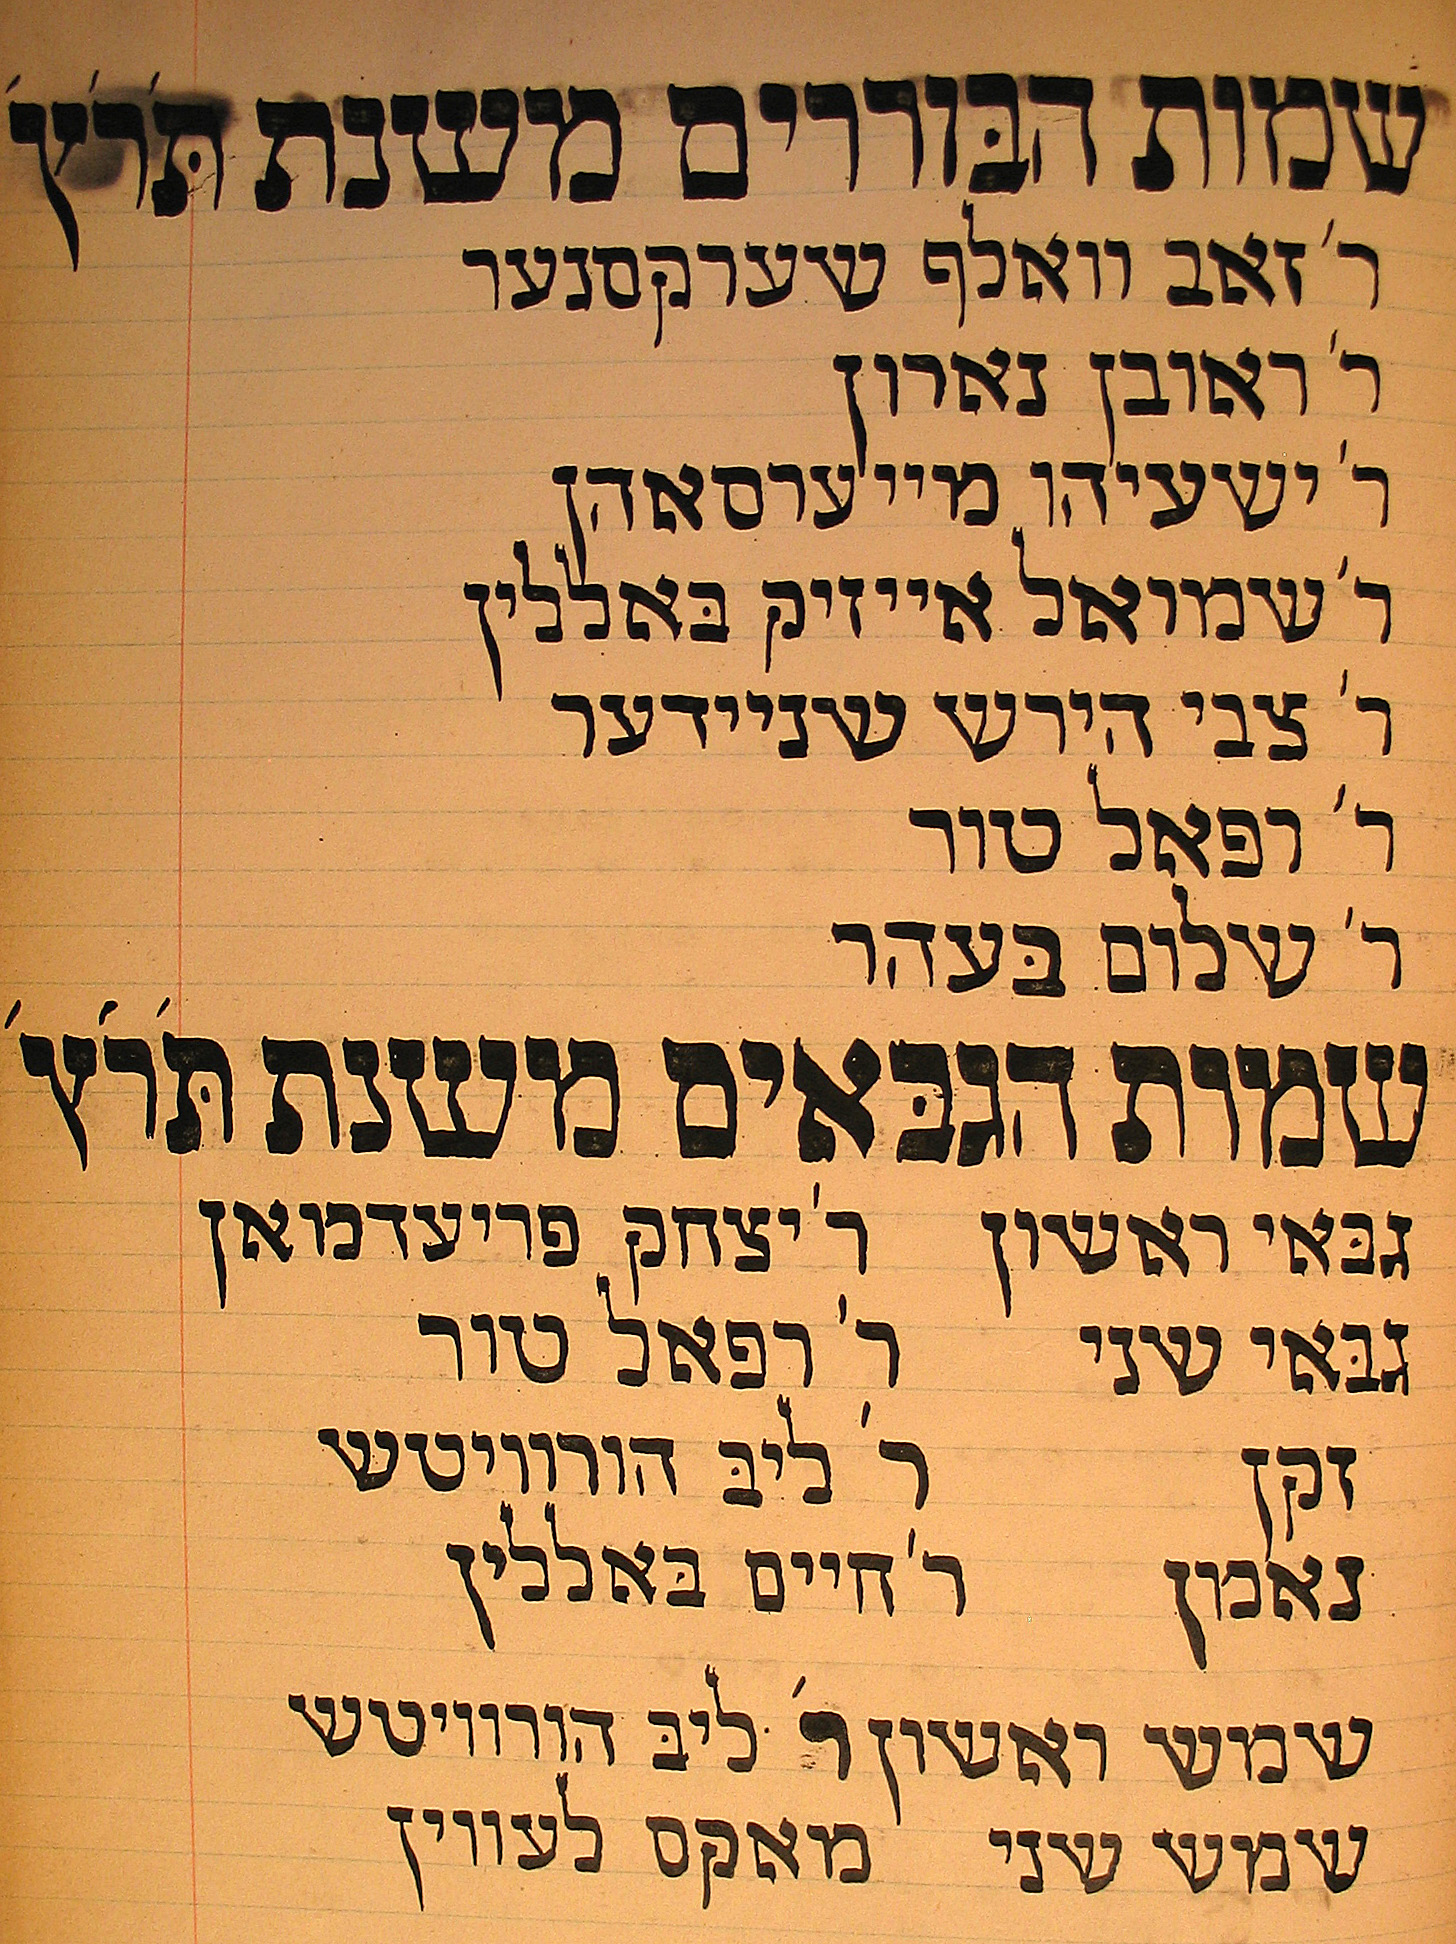 שמות הבּוררים משנת תּ'ר'ץ'
ר' זאב וואלף שערקסנער
ר' ראובן נארון
ר' ישעיהו מייערסאהן
ר' שמואל אייזיק בּאללין
ר' צבי הירש שניידער
ר' רפאל טור
ר' שלום בּעהר
שמות הגבּאים משנת תּ'ר'ץ'
גבּאי ראשון ר' יצחק פריעדמואן
גבּאי שני ר' רפאל טור
זקן ר' ליבּ הורוויטש
נאמון ר' חיים בּאללין
שמש ראשון ר' ליבּ הורוויטש
שמש שני מאקס לעווין